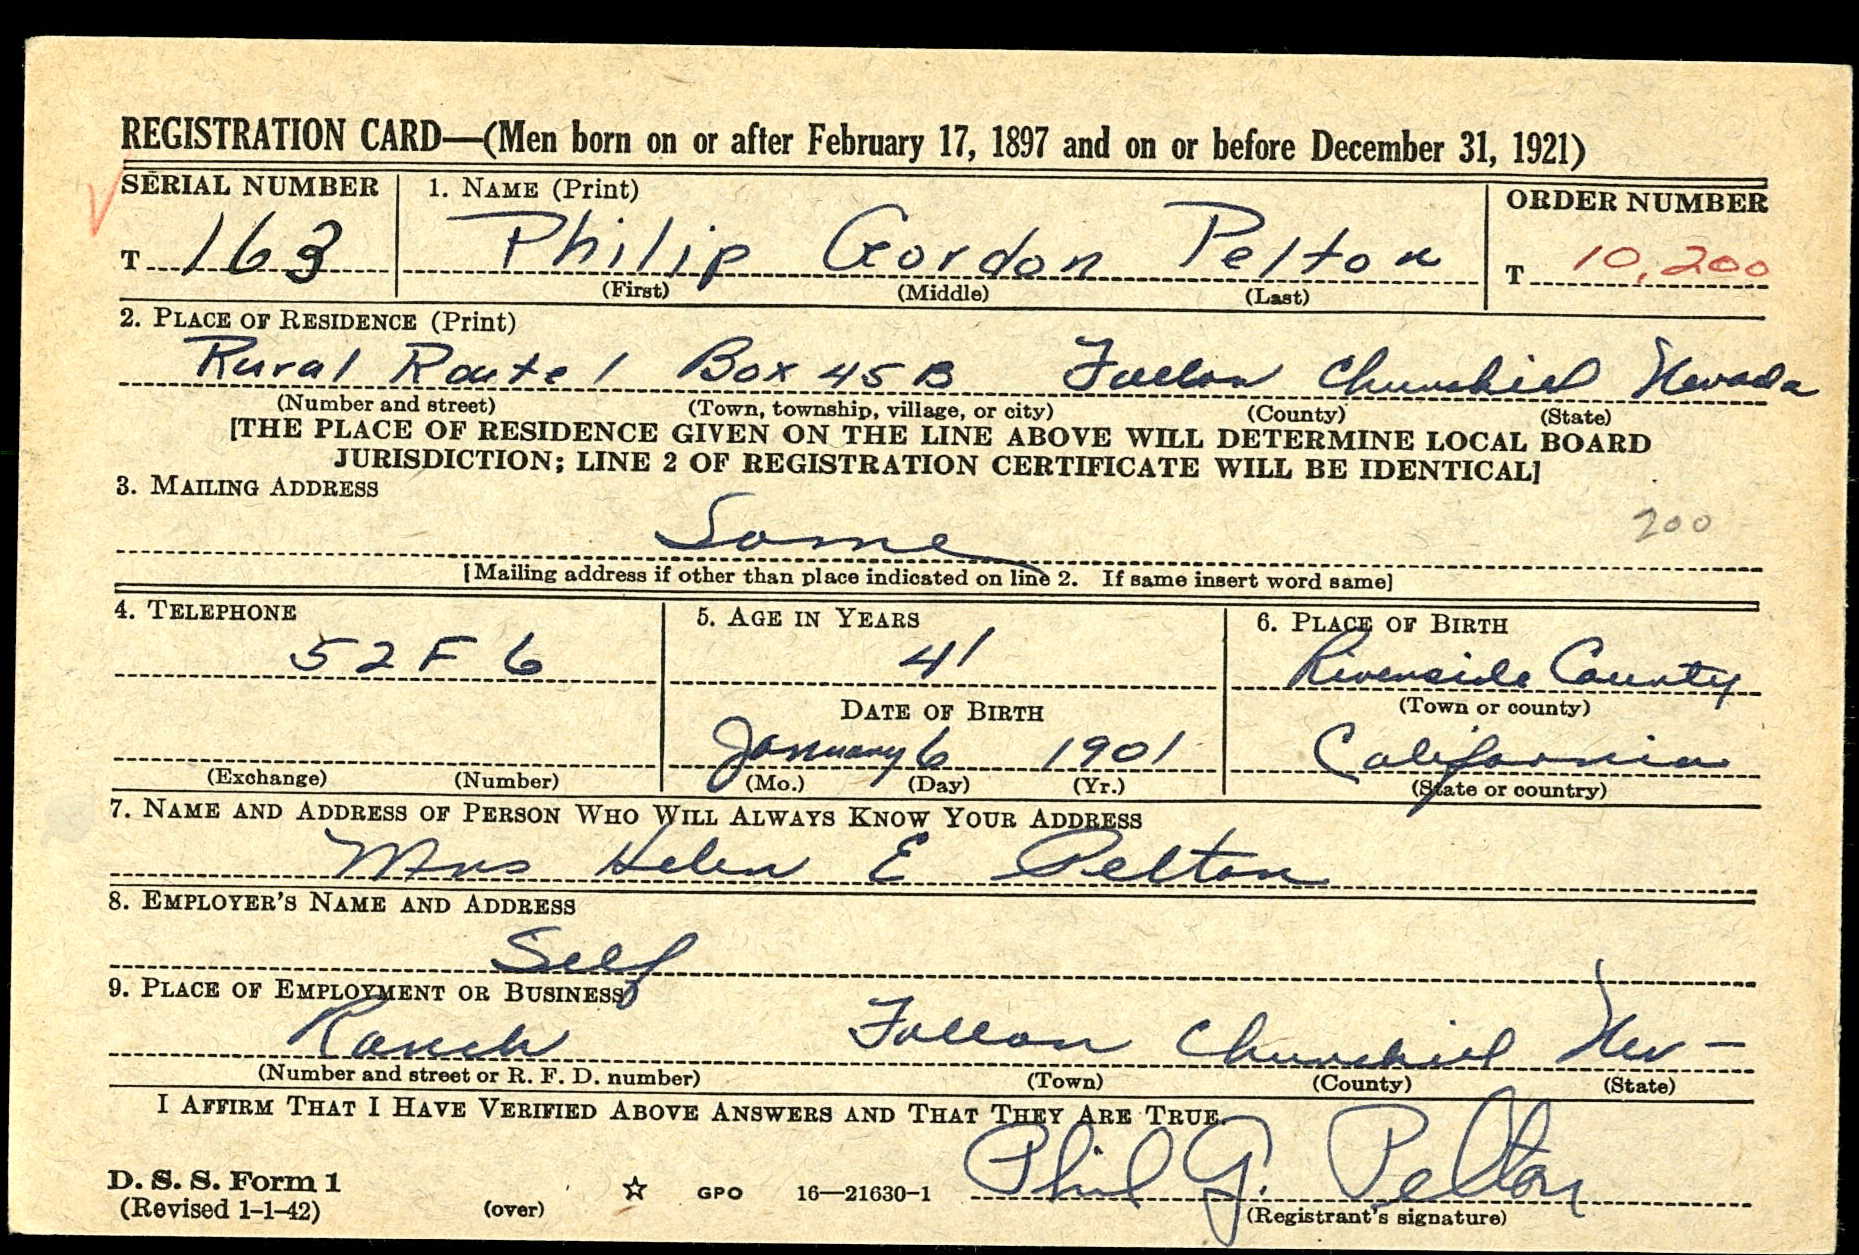 REGISTRATION CARD—(Men born on or after February 17, 1897 and on or before December 31, 1921)
SERIAL NUMBER 1. NAME (Print) ORDER NUMBER
T 163 Philip Gordon Pelton T 10,200
(First) (Middle) (Last)
2. PLACE OF RESIDENCE (Print)
Rural Route 1 Box 45 B Fallon Churchill Nevada
(Number and street) (Town, township, village, or city) (County) (State)
[THE PLACE OF RESIDENCE GIVEN ON THE LINE ABOVE WILL DETERMINE LOCAL BOARD
JURISDICTION; LINE 2 OF REGISTRATION CERTIFICATE WILL BE IDENTICAL]
3. MAILING ADDRESS
200
Same
[Mailing address if other than place indicated on line 2. If same insert word same]
4. TELEPHONE 5. AGE IN YEARS 6. PLACE OF BIRTH
52 F 6 41 Riverside County
DATE OF BIRTH (Town or county)
January 6 1901 California
(Exchange) (Number) (Mo.) (Day) (Yr.) (State or country)
7. NAME AND ADDRESS OF PERSON WHO WILL ALWAYS KNOW YOUR ADDRESS
Mrs Helen E Pelton
8. EMPLOYER'S NAME AND ADDRESS
Self
9. PLACE OF EMPLOYMENT OR BUSINESS
Ranch Fallon Churchill Nev -
(Number and street or R. F. D. number) (Town) (County) (State)
I AFFIRM THAT I HAVE VERIFIED ABOVE ANSWERS AND THAT THEY ARE TRUE.
Phil G. Pelton
D. S. S. Form 1
(Revised 1-1-42) (over) GPO 16—21630-1 (Registrant's signature)